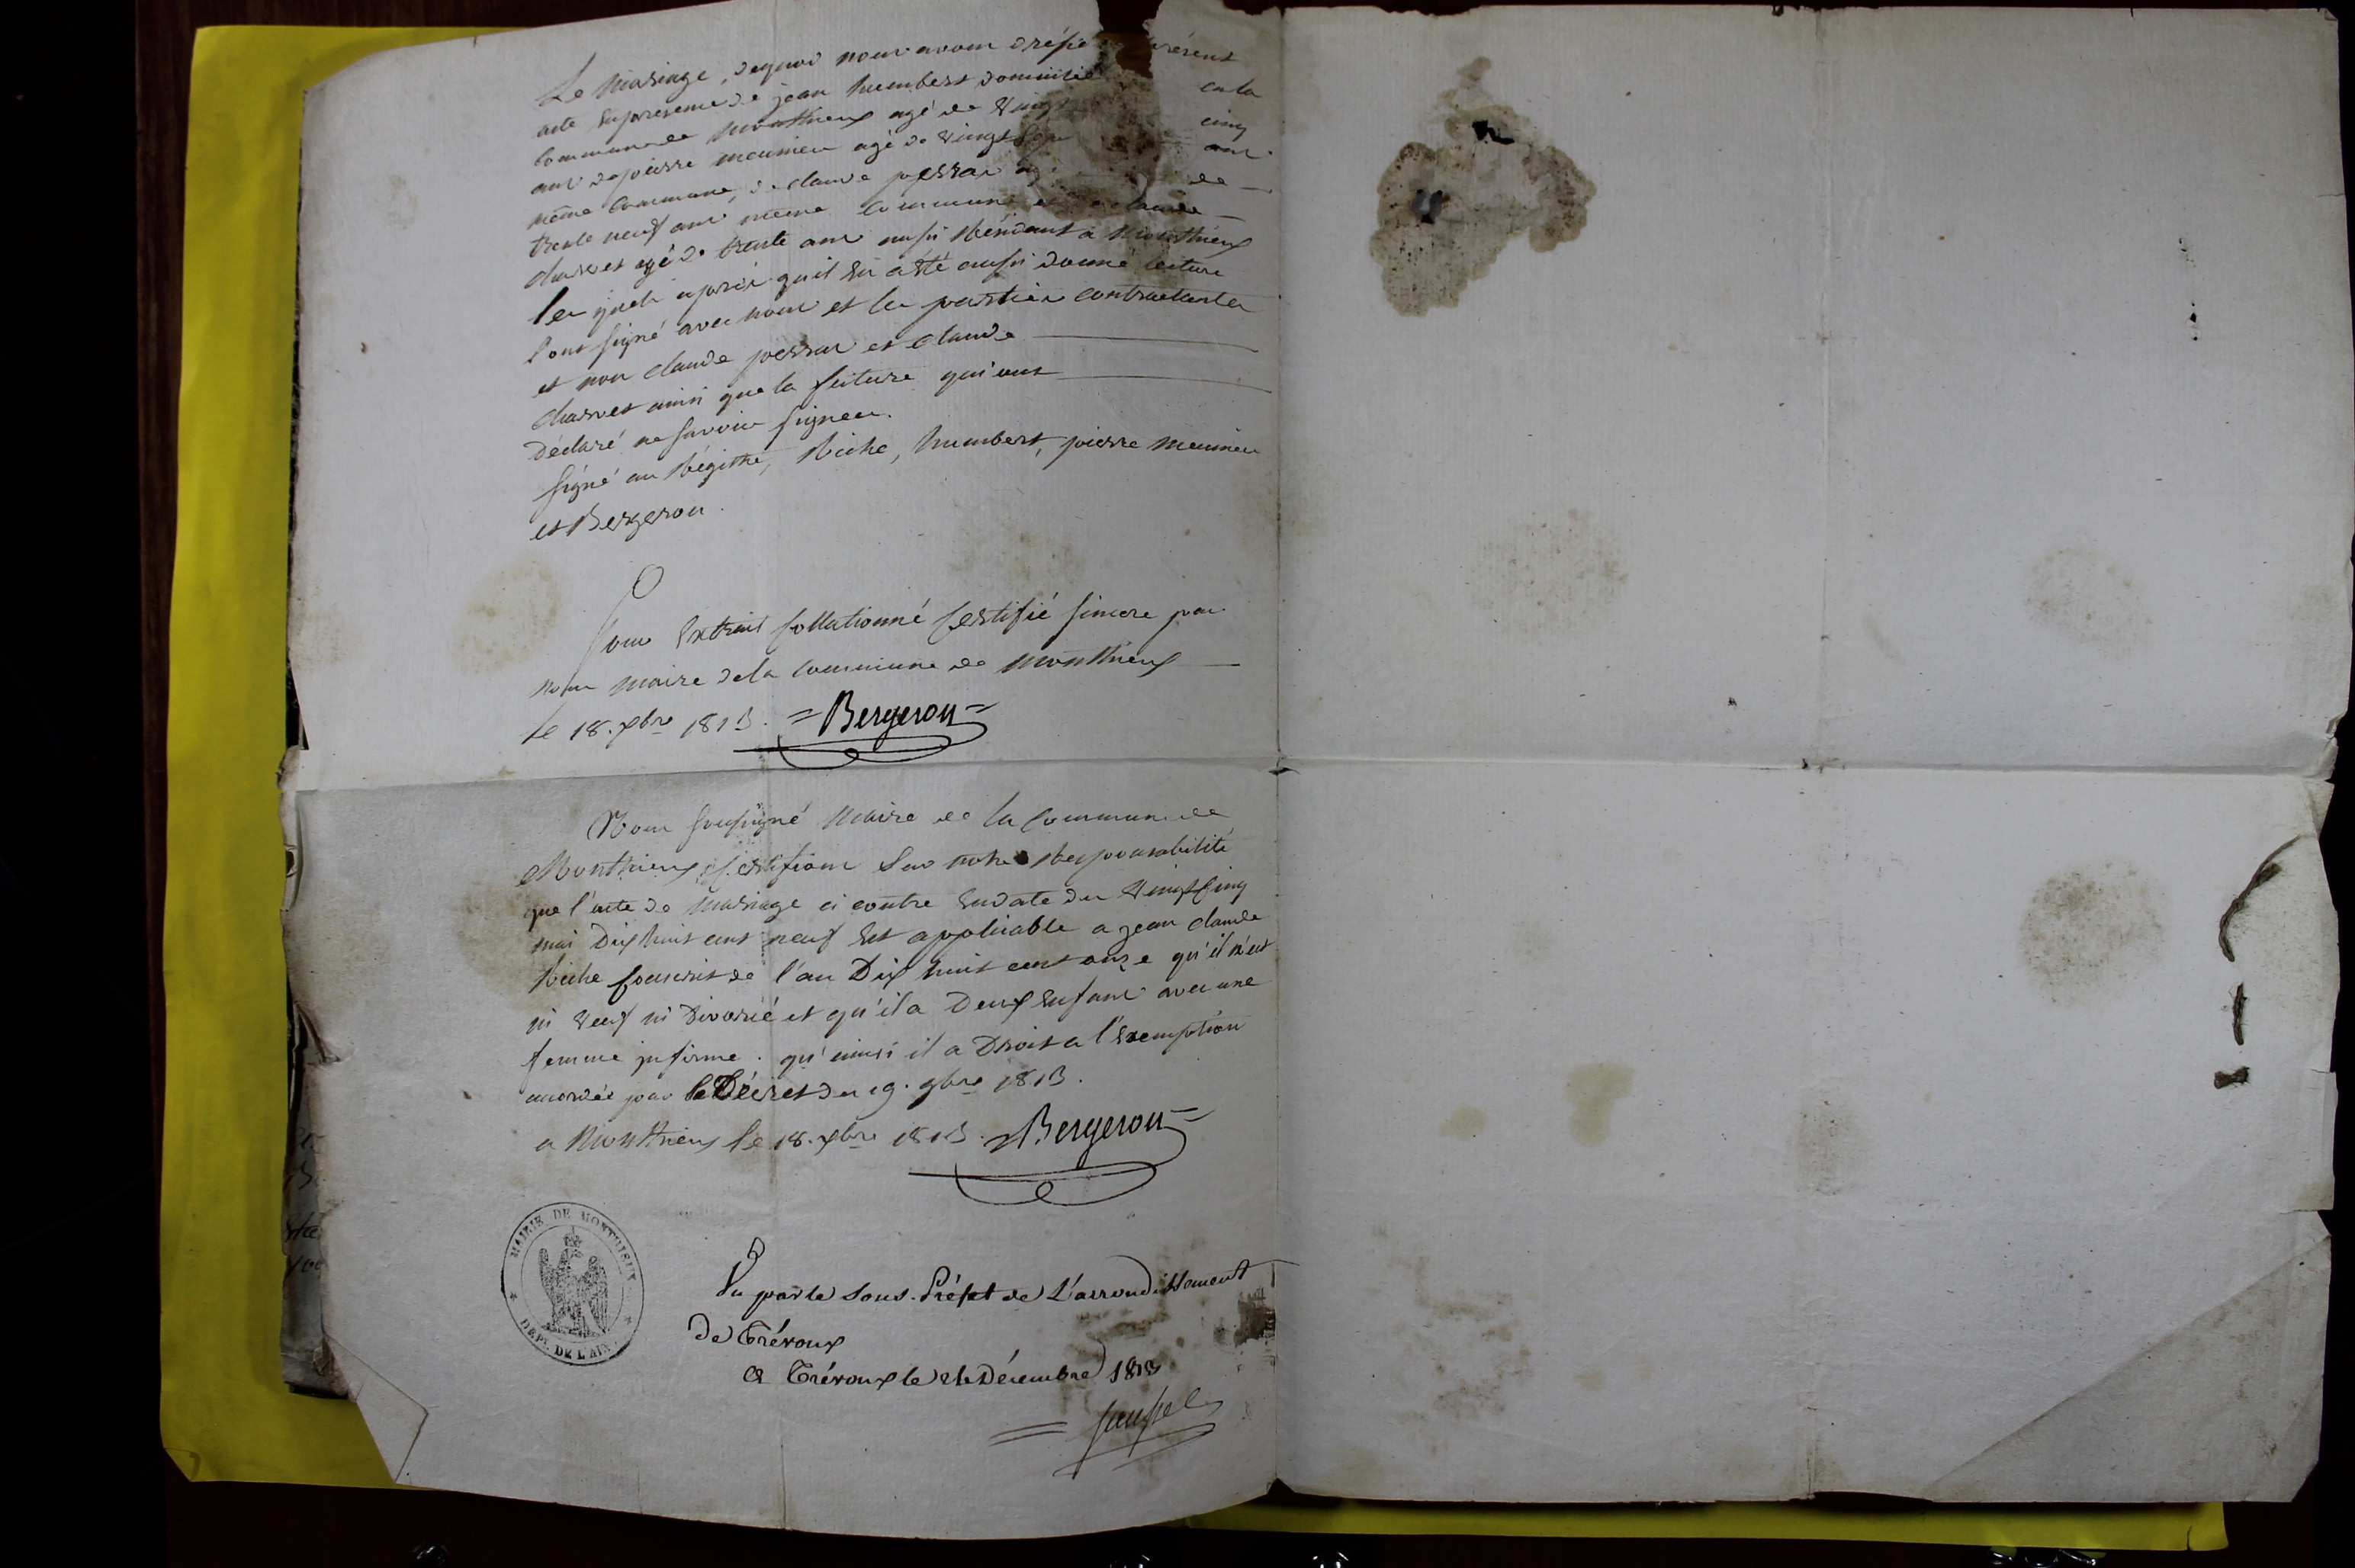 Le mariage, dequoi nous avons dressé présent
acte en présence de jean humbert domicilié en la
commune de Monthieux agé de Vingt cinq
ans de pierre meunier agé de vingt ans
même commune, de claude perrar agé de
trente neuf ans même commune et claude
charvet agé de trente ans aussi Résidant à Monthieux
les quels après qu'il en a été aussi donné lecture
l'ont signé avec nous et les parties contractantes
et non claude perrar et claude
charvet ainsi que la future qui ont
Déclaré ne savoir signer.
signé au Régistre, Riche, humbert, pierre meunier
et Bergeron.
Pour Extrait Collationné Certifié sincere par
nous maire de la commune de Monthieux
le 18. xbre 1813. =Bergeron=
Nous soussigné Maire de la Commune de
Monthieux Certifions sur notre Responsabilité
que l'acte de mariage ci contre en date du Vingt Cinq
mai Dix huit cent neuf Est applicable a jean claude
Riche Conscrit de l'an Dix huit cent onze qu'il n'est
ni veuf ni Divorcé et qu'il a Deux Enfans avec une
femme infirme. qu'ainsi il a Droit a l'Exemption
accordée par le Décret du 19. 9bre 1813.
a Monthieux le 18. xbre 1813. =Bergeron=
MAIRIE DE MONTHIEUX
DEPT. DE L'AIN
Vu par le Sous-Préfet de L'arrondissement
de Trévoux
A Trévoux le Décembre 1813